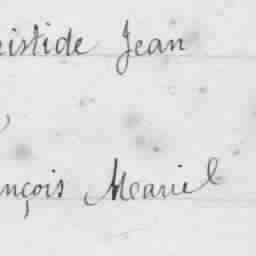 istide Jean
,
nçois Mariel